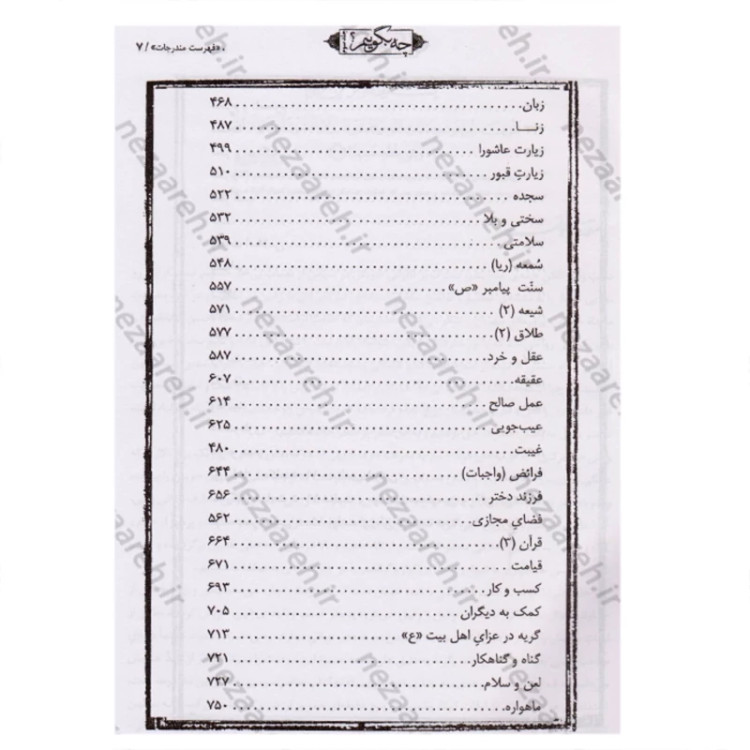 . «فهرست مندرجات» / ۷
چه بگوییم؟
زبان ۴۶۸
زنــا ۴۸۷
زیارت عاشورا ۴۹۹
زیارتِ قبور ۵۱۰
سجده ۵۲۲
سختی و بلا ۵۳۲
سلامتی ۵۳۹
سُمعه (ریا) ۵۴۸
سنّت پیامبر «ص» ۵۵۷
شیعه (۲) ۵۷۱
طلاق (۲) ۵۷۷
عقل و خرد ۵۸۷
عقیقه ۶۰۷
عمل صالح ۶۱۴
عیب‌جویی ۶۲۵
غیبت ۴۸۰
فرائض (واجبات) ۶۴۴
فرزند دختر ۶۵۶
فضایِ مجازی ۵۶۲
قرآن (۳) ۶۶۴
قیامت ۶۷۱
کسب و کار ۶۹۳
کمک به دیگران ۷۰۵
گریه در عزایِ اهل بیت «ع» ۷۱۳
گناه و گناهکار ۷۲۱
لعن و سلام ۷۲۷
ماهواره ۷۵۰
nezaareh.ir